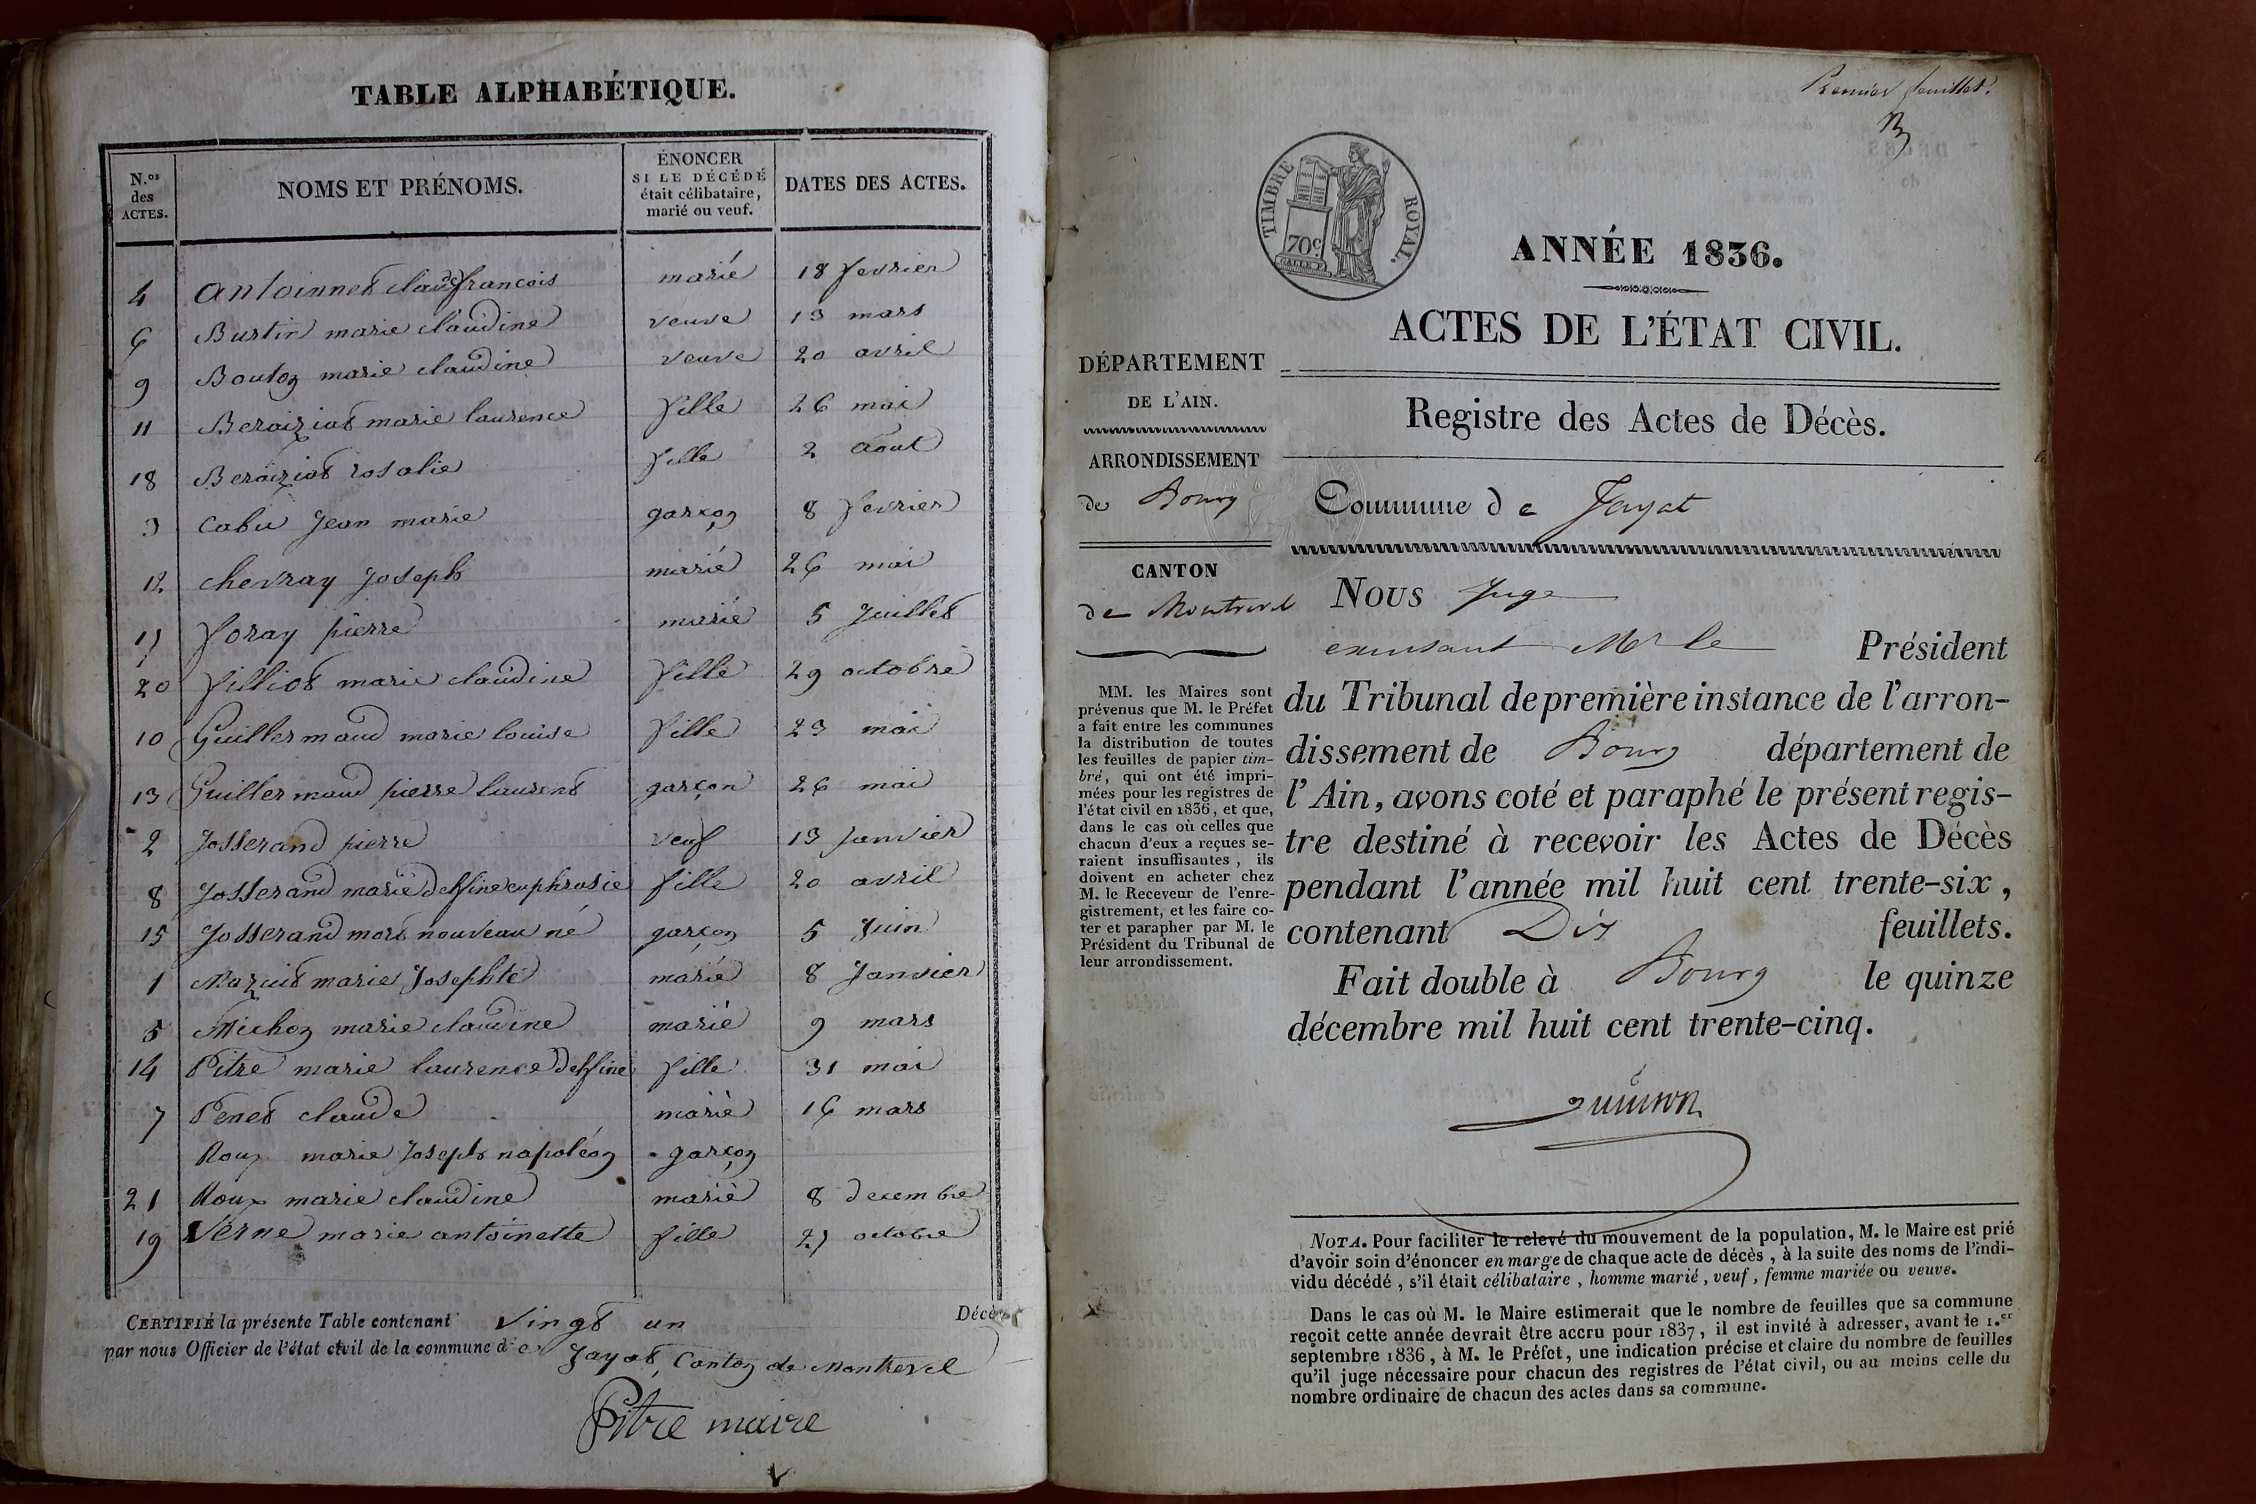 TABLE ALPHABÉTIQUE.
N.os des ACTES.
NOMS ET PRÉNOMS.
ÉNONCER SI LE DÉCÉDÉ était célibataire, marié ou veuf.
DATES DES ACTES.
4 Antoinnet claude françois marié 18 fevrier
6 Burtin marie claudine veuve 13 mars
9 Bouton marie claudine veuve 20 avril
11 Beraiziat marie laurence fille 26 mai
18 Beraiziat rosalie fille 2 Aout
3 Cabu Jean marie garçon 8 fevrier
12 chevray Joseph marié 26 mai
17 foray pierre marié 5 Juillet
20 filliot marie claudine fille 29 octobre
10 Guillermaud marie louise fille 23 mai
13 Guillermaud pierre laurent garçon 26 mai
2 Josserand pierre veuf 13 Janvier
8 Josserand marie delfine euphrosie fille 20 avril
15 Josserand mort nouveau né garçon 5 Juin
1 Mazuit marie Josephte marié 8 Janvier
5 Michon marie claudine marié 9 mars
14 Pitre marie laurence delfine fille 31 mai
7 Penet claude marié 16 mars
Roux marie Joseph napoléon garçon
21 Roux marie claudine marié 8 decembre
19 Verne marie antoinette fille 27 octobre
CERTIFIÉ la présente Table contenant vingt un Décès
par nous Officier de l'état civil de la commune de Jayat, Canton de Montrevel
Pitre maire
Premier feuillet.
TIMBRE ROYAL.
70c
ANNÉE 1836.
ACTES DE L'ÉTAT CIVIL.
DÉPARTEMENT
DE L'AIN.
ARRONDISSEMENT
de Bourg
CANTON
de Montrevel
MM. les Maires sont
prévenus que M. le Préfet
a fait entre les communes
la distribution de toutes
les feuilles de papier tim-
bré, qui ont été impri-
mées pour les registres de
l'état civil en 1836, et que,
dans le cas où celles que
chacun d'eux a reçues se-
raient insuffisantes, ils
doivent en acheter chez
M. le Receveur de l'enre-
gistrement, et les faire co-
ter et parapher par M. le
Président du Tribunal de
leur arrondissement.
Registre des Actes de Décès.
Commune de Jayat
Nous Juge
Mr le Président
du Tribunal de première instance de l'arron-
dissement de Bourg département de
l'Ain, avons coté et paraphé le présent regis-
tre destiné à recevoir les Actes de Décès
pendant l'année mil huit cent trente-six,
contenant Dix feuillets.
Fait double à Bourg le quinze
décembre mil huit cent trente-cinq.
NOTA. Pour faciliter le relevé du mouvement de la population, M. le Maire est prié
d'avoir soin d'énoncer en marge de chaque acte de décès, à la suite des noms de l'indi-
vidu décédé, s'il était célibataire, homme marié, veuf, femme mariée ou veuve.
Dans le cas où M. le Maire estimerait que le nombre de feuilles que sa commune
reçoit cette année devrait être accru pour 1837, il est invité à adresser, avant le 1.er
septembre 1836, à M. le Préfet, une indication précise et claire du nombre de feuilles
qu'il juge nécessaire pour chacun des registres de l'état civil, ou au moins celle du
nombre ordinaire de chacun des actes dans sa commune.